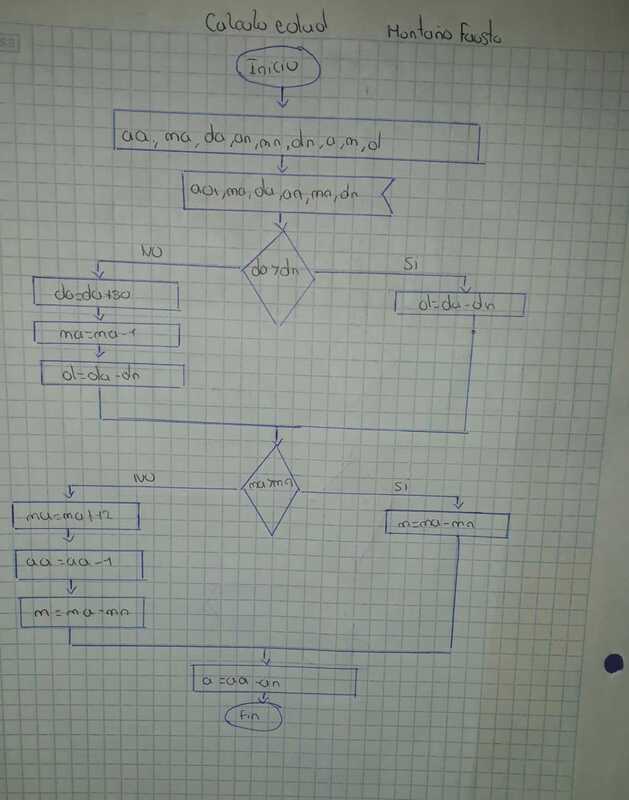 Calculo edad
Montaño Fausto
Inicio
aa, ma, da, an, mn, dn, a, m, d
aa, ma, da, an, mn, dn
da>dn
NO
SI
da=da+30
ma=ma-1
d=da-dn
d=da-dn
ma>mn
NO
SI
ma=ma+12
aa=aa-1
m=ma-mn
m=ma-mn
a=aa-an
Fin